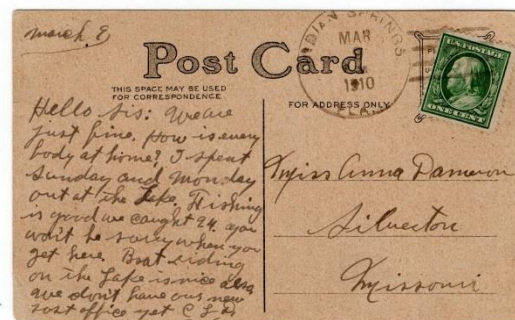 March 8
Post Card
THIS SPACE MAY BE USED
FOR CORRESPONDENCE
FOR ADDRESS ONLY
INDIAN SPRINGS
MAR
1910
FLA.
U.S. POSTAGE
ONE CENT
Hello Sis: We are
just fine. How is every
body at home? I spent
Sunday and Monday
out at the Lake. Fishing
is good we caught 24. you
won't be sorry when you
get here. Boat riding
on the Lake is nice also
we don't have our new
Post office yet
Miss Anna Dameron
Silverton
Missouri